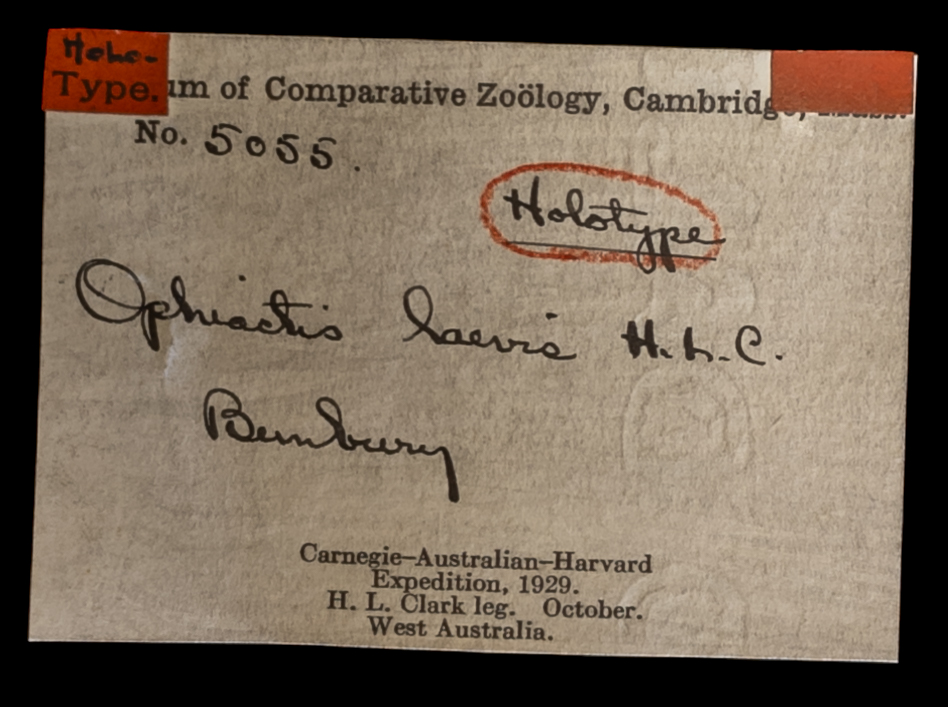 Holo-
Type.um of Comparative Zoölogy, Cambridge, Mass.
No. 5055.
Holotype
Ophiactis laevis H.L.C.
Bunbury
Carnegie–Australian–Harvard
Expedition, 1929.
H. L. Clark leg. October.
West Australia.